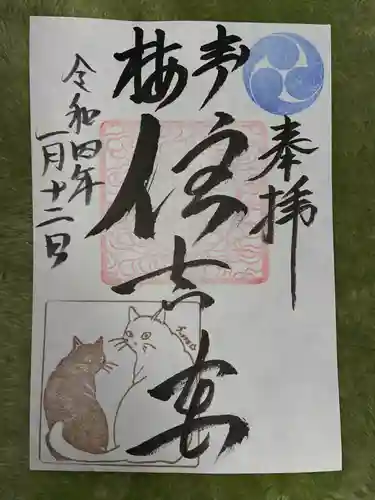 奉拝
青梅
住吉宮
令和四年
一月十二日